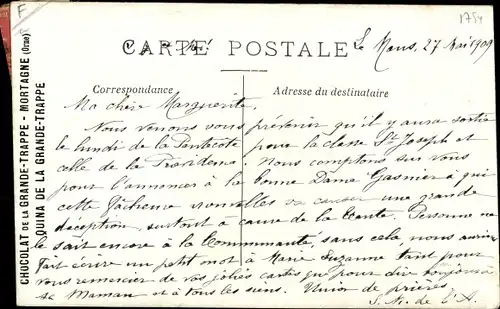 F
1754
CARTE POSTALE
Le Mans, 27 Mai 1909
Correspondance
Adresse du destinataire
CHOCOLAT DE LA GRANDE-TRAPPE - MORTAGNE (Orne)
QUINA DE LA GRANDE-TRAPPE
Ma chère Marguerite,
Nous venons vous prévenir qu'il y aura sortie
le lundi de la Pentecôte pour la classe St Joseph et
celle de la Providence. Nous comptons sur vous
pour l'annoncer à la bonne Dame Gasnier à qui
cette fâcheuse nouvelle va causer une grande
déception, surtout à cause de la Tante. Personne ne
le sait encore à la Communauté, sans cela nous aurions
fait écrire un petit mot à Marie Suzanne tant pour
vous remercier de vos jolies cartes que pour dire bonjour à
sa Maman et à tous les siens. Union de prières
S. M. de l'A.